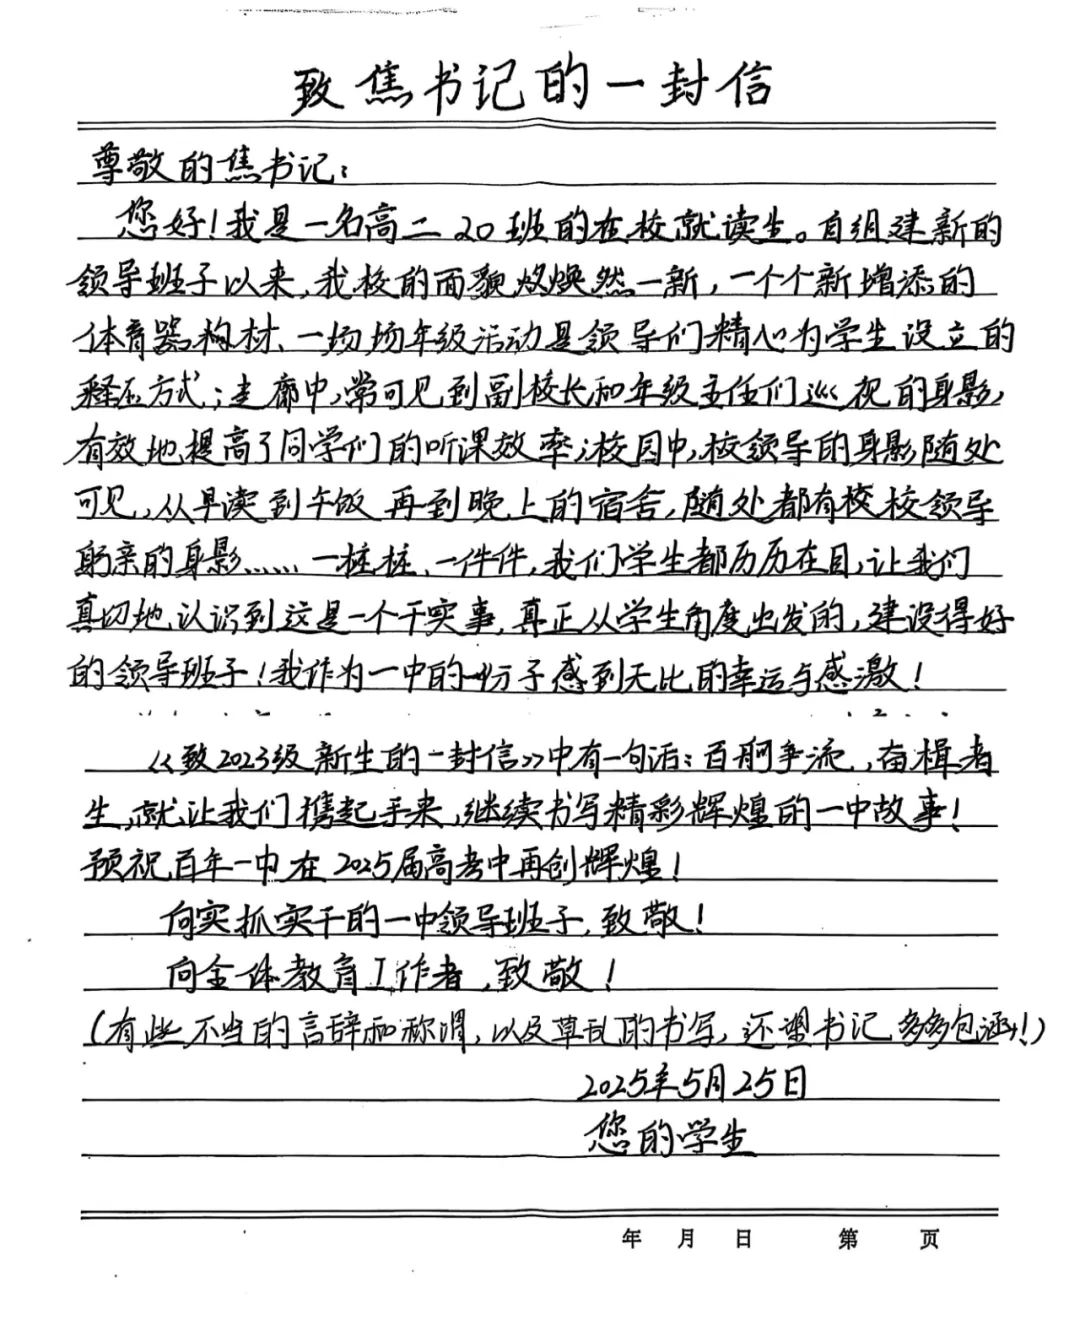 致焦书记的一封信
尊敬的焦书记：
您好！我是一名高二20班的在校就读生。自组建新的
领导班子以来，我校的面貌焕然一新，一个个新增添的
体育器材、一场场年级活动是领导们精心为学生设立的
释压方式；走廊中，常可见到副校长和年级主任们巡视的身影，
有效地提高了同学们的听课效率；校园中，校领导的身影随处
可见，从早读到午饭再到晚上的宿舍，随处都有校领导
躬亲的身影……一桩桩、一件件，我们学生都历历在目，让我们
真切地认识到这是一个干实事，真正从学生角度出发的，建设得好
的领导班子！我作为一中的一份子感到无比的幸运与感激！
《致2023级新生的一封信》中有一句话：百舸争流，奋楫者
生，就让我们携起手来，继续书写精彩辉煌的一中故事！
预祝百年一中在2025届高考中再创辉煌！
向实抓实干的一中领导班子，致敬！
向全体教育工作者，致敬！
（有些不当的言辞和称谓，以及草乱的书写，还望书记多多包涵！）
2025年5月25日
您的学生
年 月 日 第 页